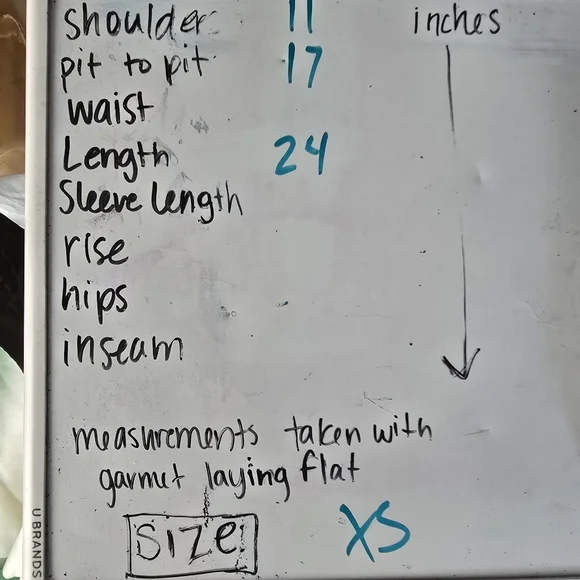 shoulder 11 inches
pit to pit 17
waist
Length 24
Sleeve length
rise
hips
inseam
measurements taken with
garmet laying flat
size XS
U BRANDS